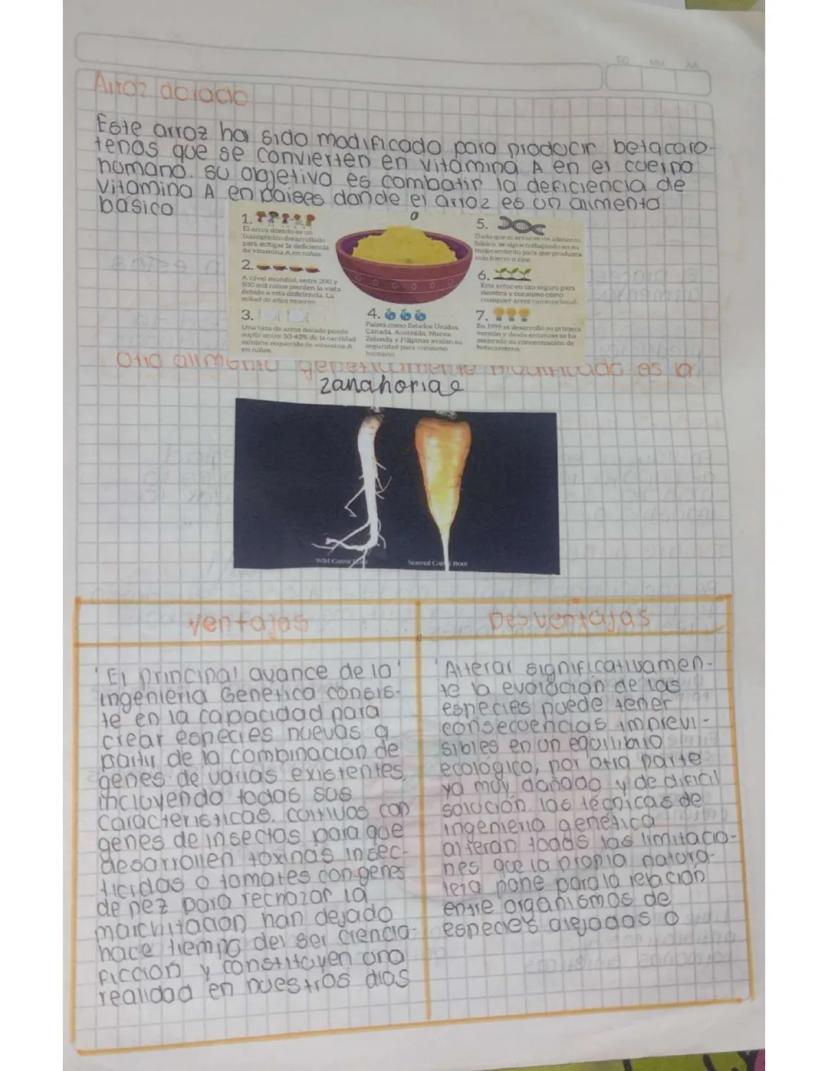 DD MM AA
Arroz dorado
Este arroz ha sido modificado para producir betacaro-
tenos que se convierten en vitamina A en el cuerpo
humano. su objetivo es combatir la deficiencia de
vitamina A en paises donde el arroz es un alimento
basico
1.
El arroz dorado es un
transgénico desarrollado
para mitigar la deficiencia
de vitamina A en niños.
2.
A nivel mundial, entre 200 y
500 mil niños pierden la vista
debido a esta deficiencia. La
mitad de ellos mueren.
3.
Una taza de arroz dorado puede
suplir entre 30-40% de la cantidad
mínima requerida de vitamina A
en niños.
4.
Países como Estados Unidos,
Canadá, Australia, Nueva
Zelanda y Filipinas avalan su
seguridad para consumo
humano.
5.
Dado que el arroz es un alimento
básico, se sigue trabajando en su
mejoramiento para que produzca
más hierro o zinc.
6.
Este arroz es tan seguro para
siembra y consumo como
cualquier arroz convencional.
7.
En 1999 se desarrolló su primera
versión y desde entonces se ha
mejorado su concentración de
betacarotenos.
Otro alimento genéticamente modificado es la
zanahoriae
Wild Carrot Root
Normal Carrot Root
Ventajas
El principal avance de la
ingenieria Genetica consis-
te en la capacidad para
crear especies nuevas a
partir de la combinación de
genes de varias existentes,
incluyendo todas sus
caracteristicas. cultivos con
genes de insectos para que
desarrollen toxinas insec-
ticidas o tomates con genes
de pez para rechazar la
marchitacion han dejado
hace tiempo del ser ciencia
ficcion y constituyen una
realidad en nuestros dias
Desventajas
Alterar significativamen-
te la evolucion de las
especies puede tener
consecuencias imprevi-
sibles en un equilibrio
ecologico, por otra parte
ya muy dañado y de dificil
solucion las técnicas de
ingenieria genetica
alteran todas las limitacio-
nes que la propia natura-
leza pone para la relacion
entre organismos de
especies alejadas o